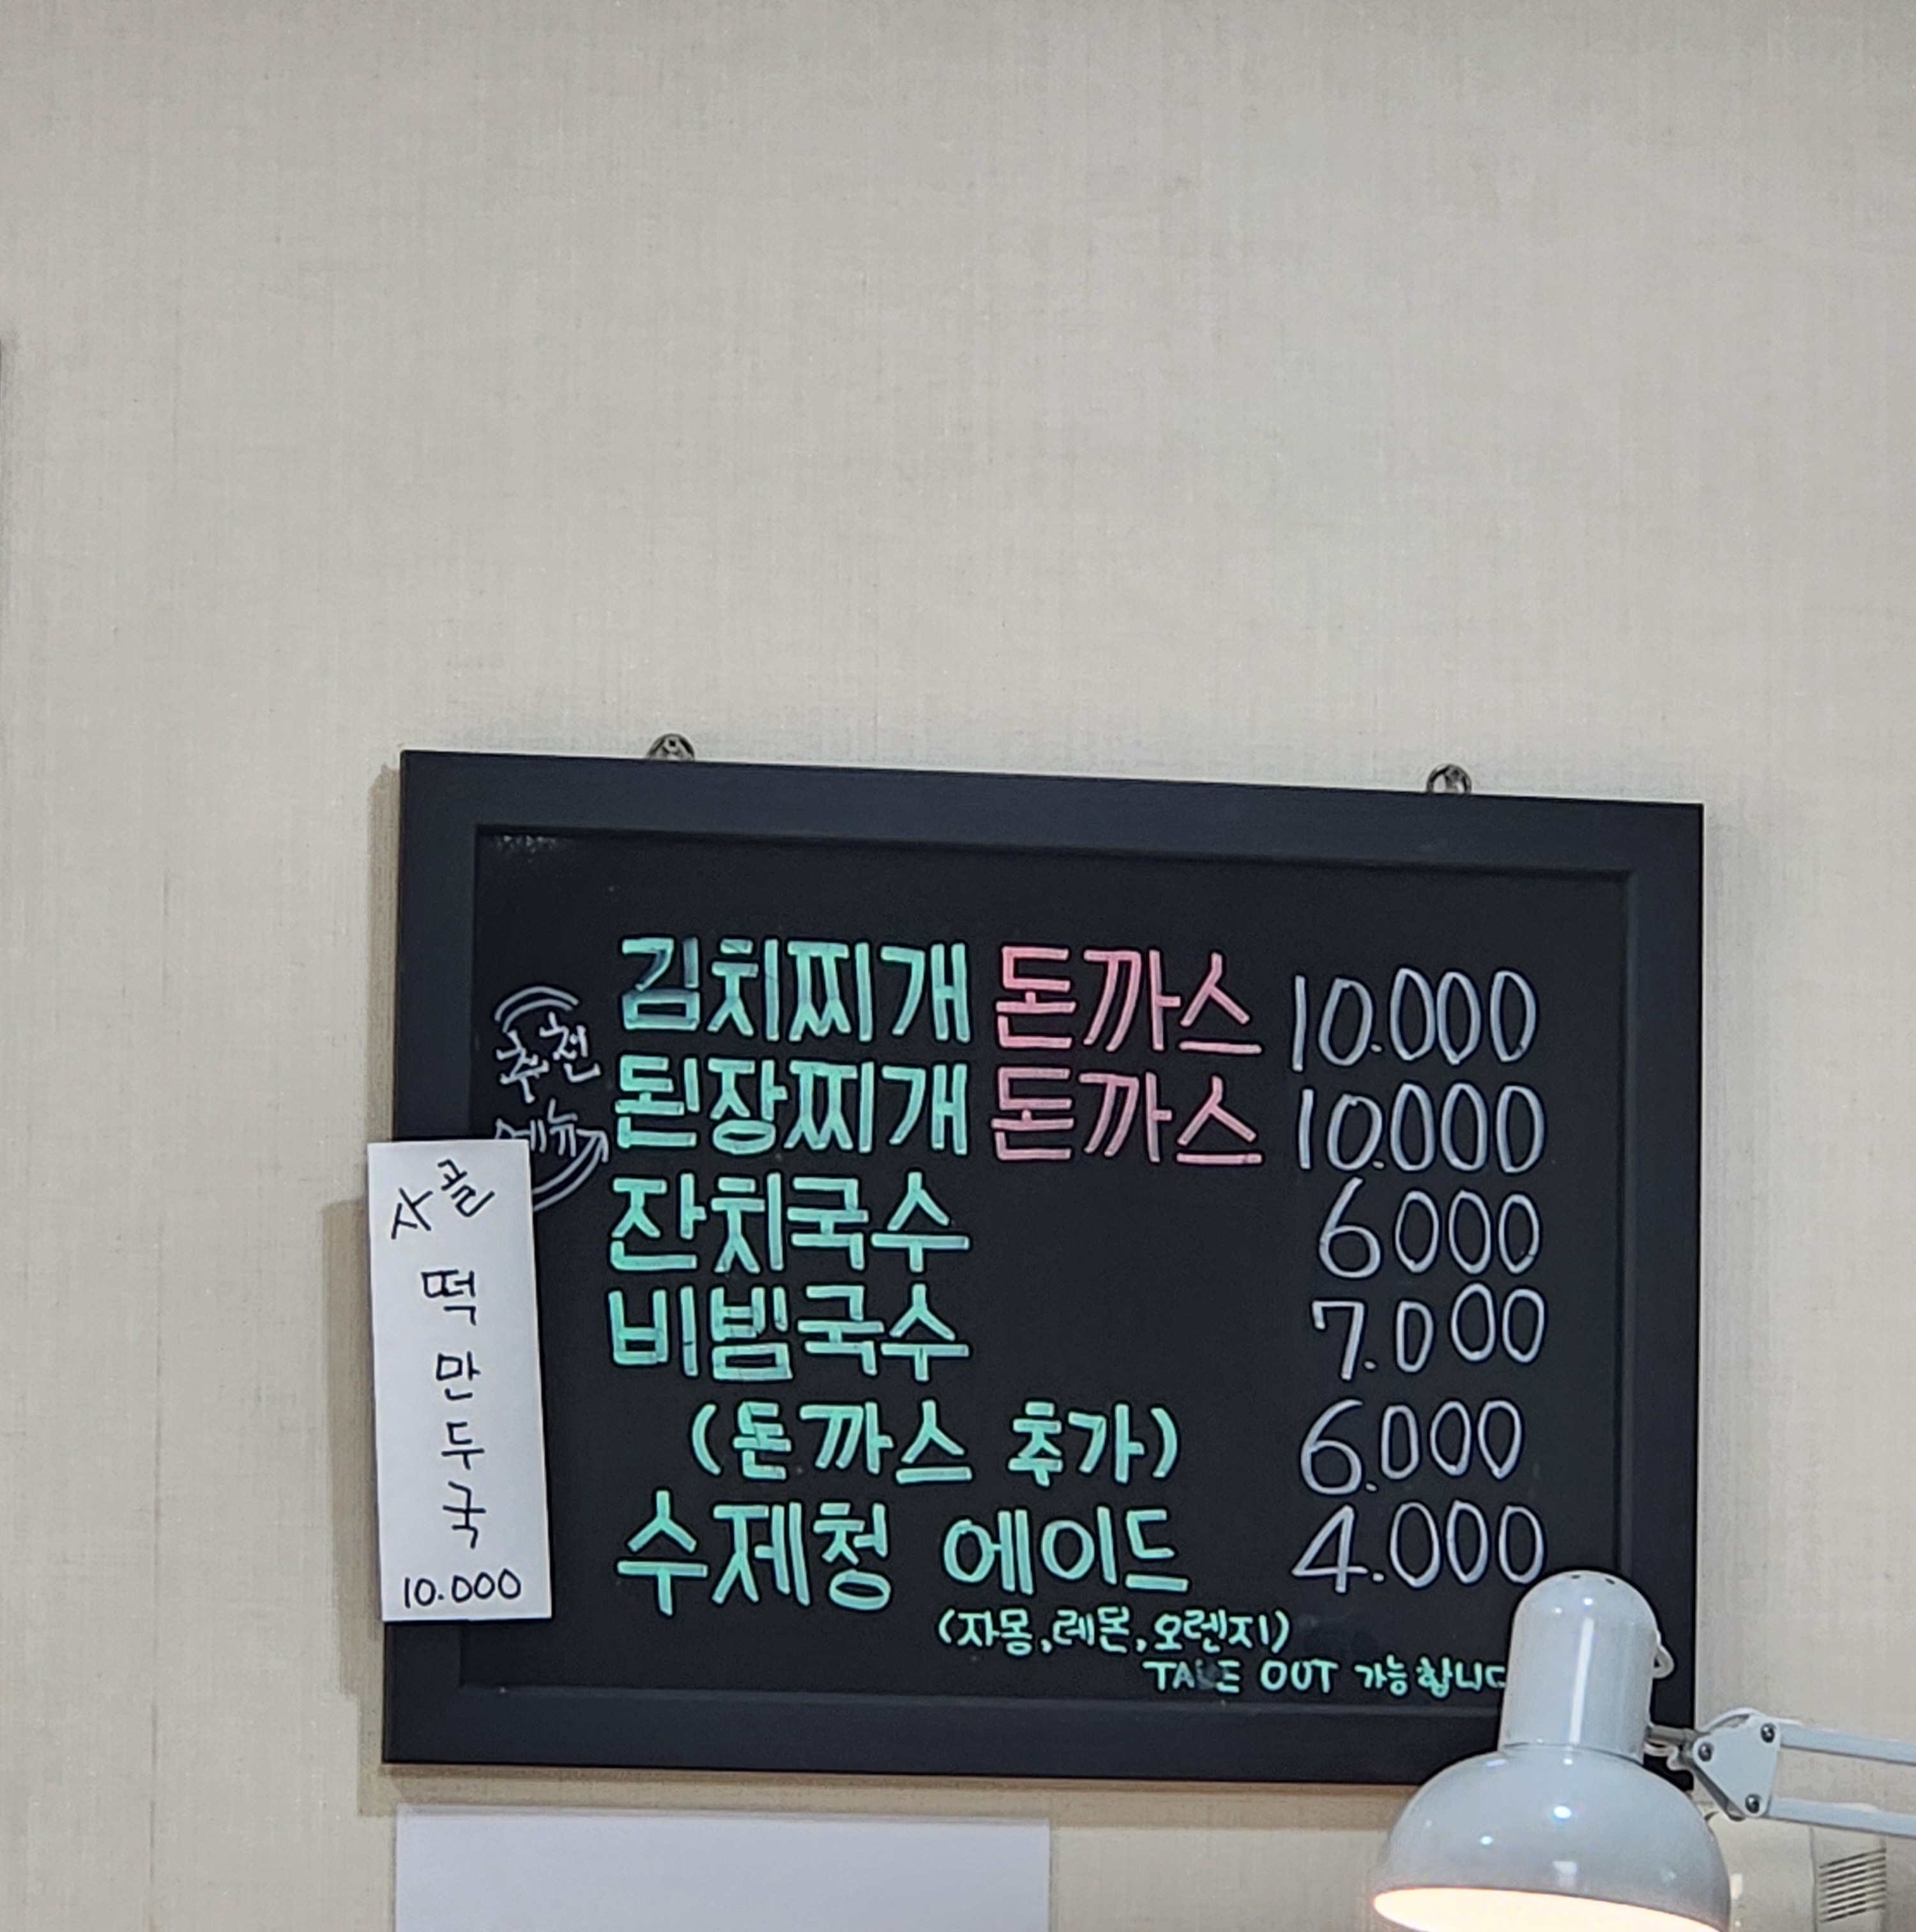 추천
메뉴
김치찌개 돈까스 10.000
된장찌개 돈까스 10.000
잔치국수 6000
비빔국수 7.000
(돈까스 추가) 6.000
수제청 에이드 4.000
(자몽,레몬,오렌지)
TAKE OUT 가능합니다
사골
떡
만
두
국
10.000